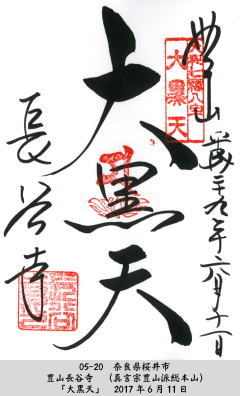 豊山 平成二九年六月十一日
大和七福八宝
大黒天
大黒天
長谷寺
05-20 奈良県桜井市
豊山長谷寺 （真言宗豊山派総本山）
「大黒天」 2017年6月11日